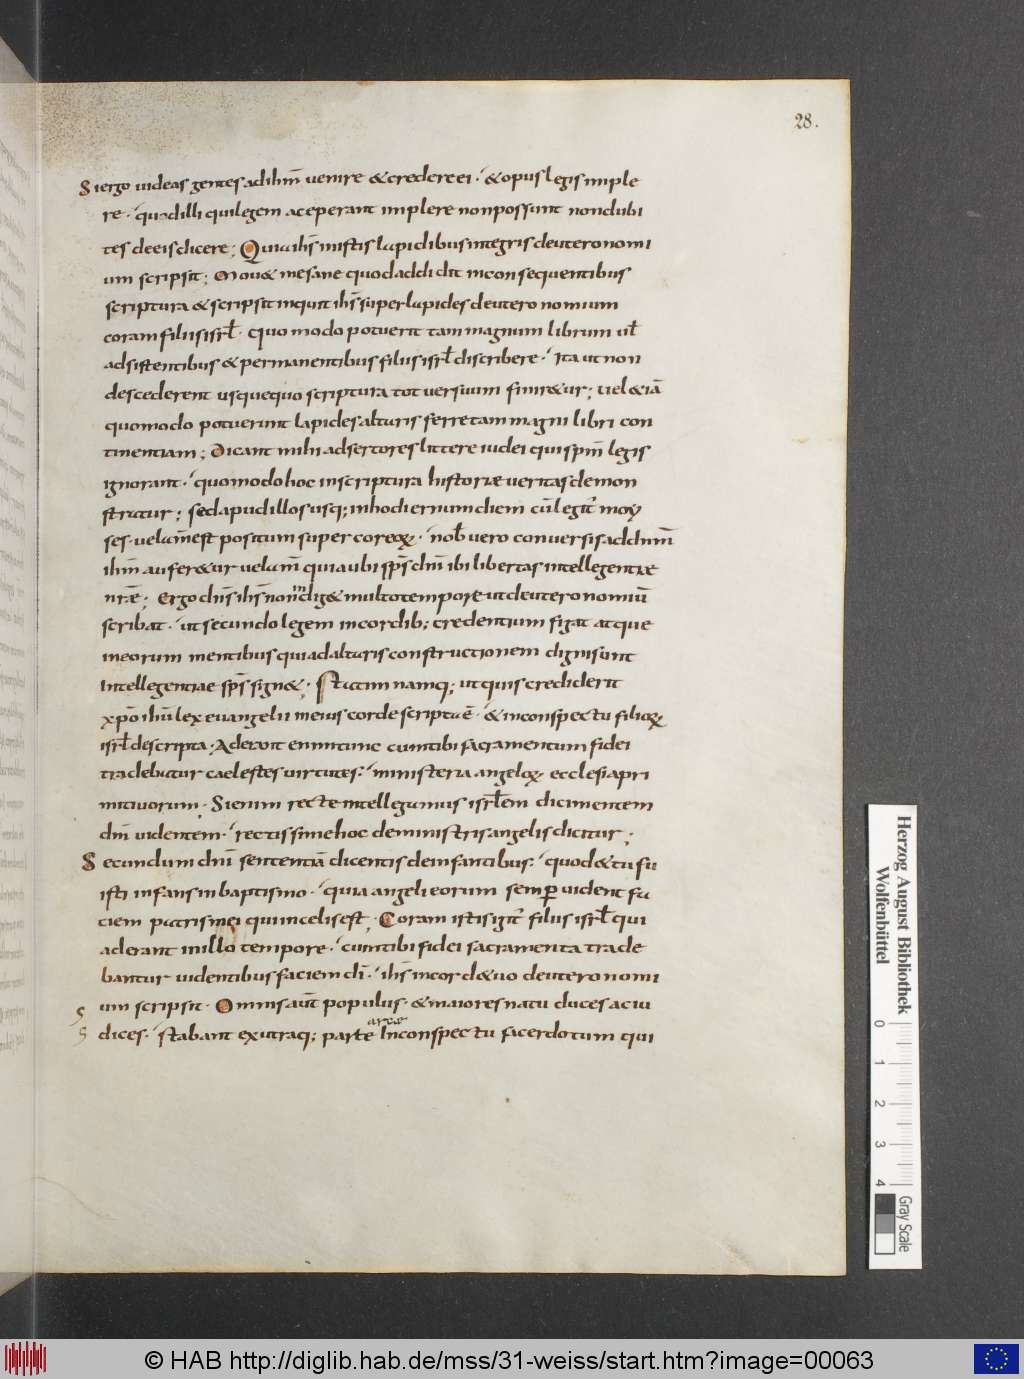 28.
Si ergo uideas gentes adihm̄ uenire &credere ei · &opus legis imple
re · quod illi qui legem aceperant implere non possunt non dubi
tes de eis dicere ; Quia ihs̄ in istis lapidibus integris deuteronomi
um scripsit ; Mou& me sane quod addidit in consequentibus
scriptura &scripsit inquit ihs̄ super lapides deuteronomium
coram filiis isrł · quomodo potuerit tam magnum librum uł
adsistentibus &permanentibus filiis isrł discribere · Ita ut non
descederent usquequo scriptura tot uersuum finir&ur ; uel &iā
quomodo potuerunt lapides alturis ferre tam magni libri con
tinentiam ; Dicant mihi adsertores littere iudei qui spm̄ legis
ignorant · quomodo hoc in scriptura historiæ ueritas demon
stratur ; sed apud illos usq; in hodiernum diem cū legit̄ moy
ses · uelam̄ est positum super cor eoꝝ · nob̄ uero conuersis ad dnm̄
ihm̄ aufer&ur uelam̄ quia ubi sps̄ dnī ibi libertas intellegentiæ
nr̄æ ; Ergo dns̄ ihs̄ non indig& multo tempore ut deuteronomiū
scribat · ut secundo legem in cordib; credentium figat atque
in eorum mentibus qui ad alturis constructionem digni sunt
Intellegentiae sps̄ sign& · Statim namq; ut quis crediderit
xpō ihū lex euangelii in eius corde scripta ē · &in conspectu filioꝝ
isrł descripta ; Aderant enim tunc cum tibi sacramentum fidei
tradebatur caelestes uirtutes · ministeria angeloꝝ ecclesia pri
mitiuorum · Si enim recte intellegamus isrłem dici mentem
dm̄ uidentem · rectissime hoc de ministris angelis dicitur ;
Secundum dnī sententiā dicentis de infantibus · quod &tu fu
isti infans in baptismo · quia angeli eorum semꝑ uident fa
ciem patris mei qui in celis est ; Coram istis igit̄ filiis isrł qui
aderant in illo tempore · cum tibi fidei sacramenta trade
bantur uidentibus faciem dī · ihs̄ in corde tuo deuteronomi
um scripsit · Omnis aut̄ populus · &maiores natu duces ac iu
arcæ
dices · stabant ex utraq; parte In conspectu sacerdotum qui
Herzog August Bibliothek
Wolfenbüttel
0 1 2 3 4
Gray Scale
© HAB http://diglib.hab.de/mss/31-weiss/start.htm?image=00063